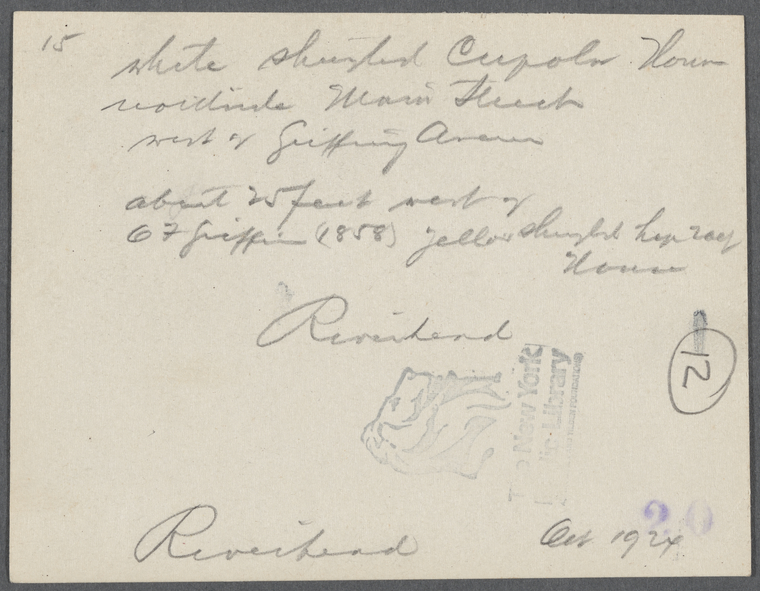 15
white shingled Cupola House
Main Street
west of Griffing Avenue
about 25 feet west of
O F Griffin (1858) yellow shingled hip roof
House
Riverhead
12
New York
Library
Riverhead
Oct 1924
20